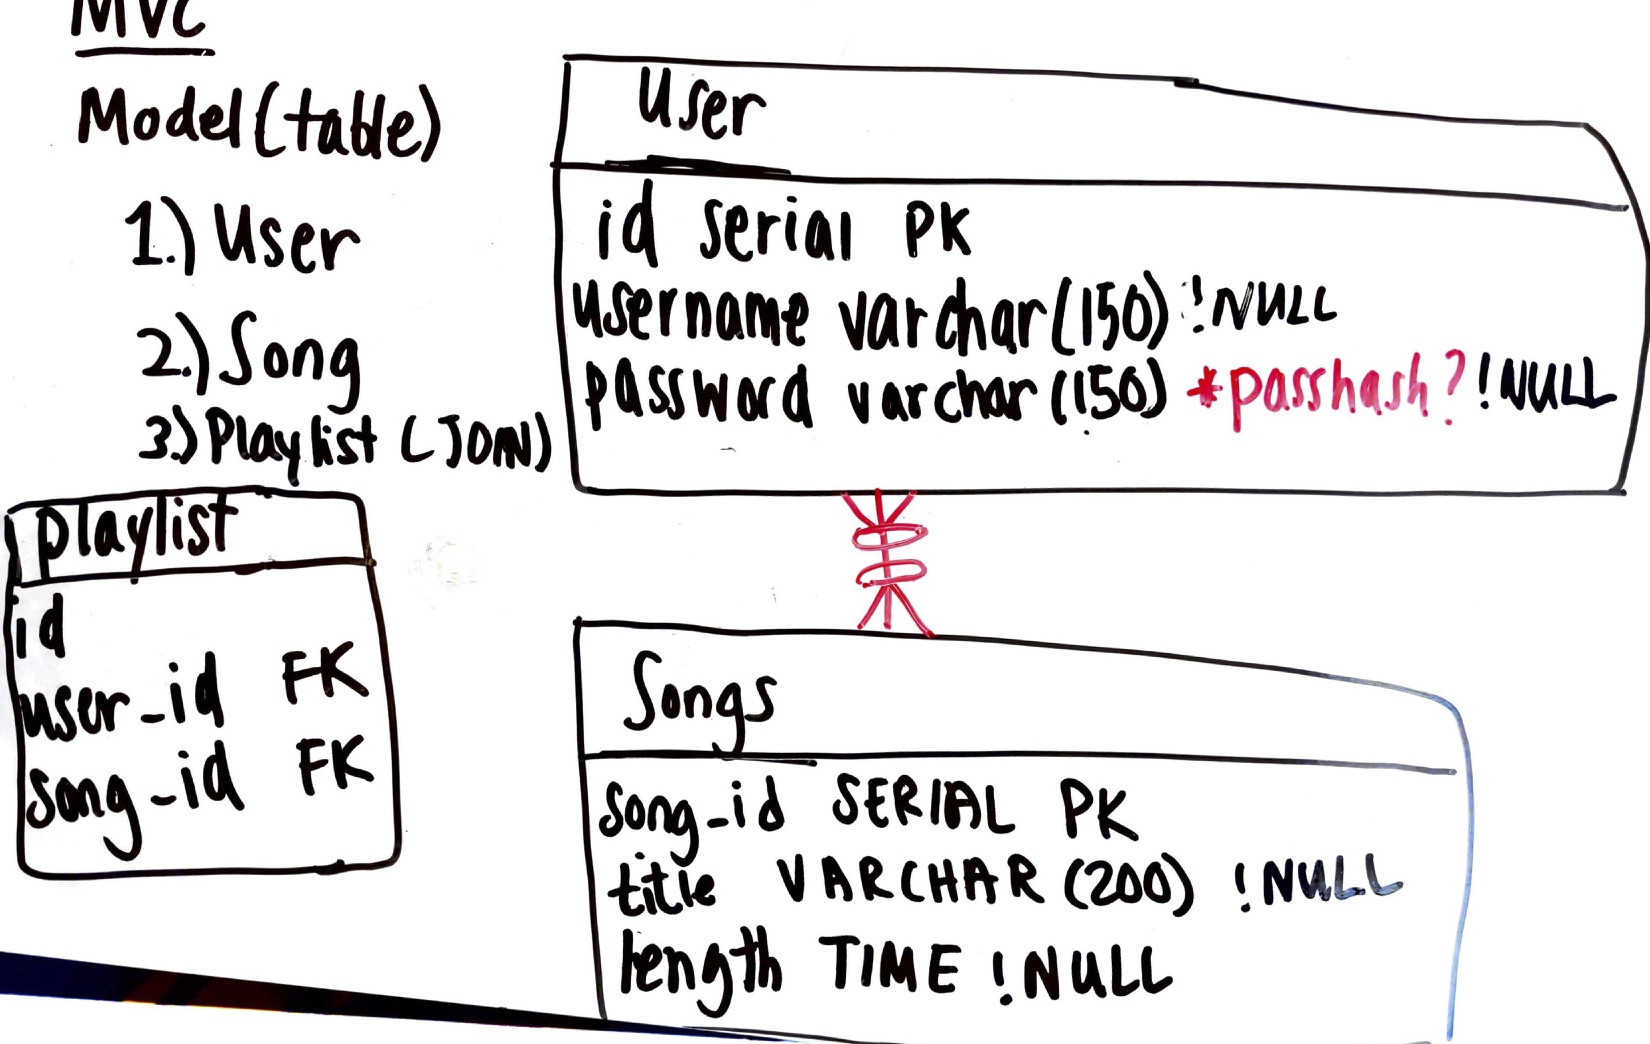 MVC
Model(table)
1.) User
2.) Song
3.) Playlist (JOIN)
playlist
id
user_id FK
song_id FK
User
id serial PK
username varchar(150) !NULL
password varchar(150) *passhash? !NULL
Songs
song_id SERIAL PK
title VARCHAR (200) !NULL
length TIME !NULL